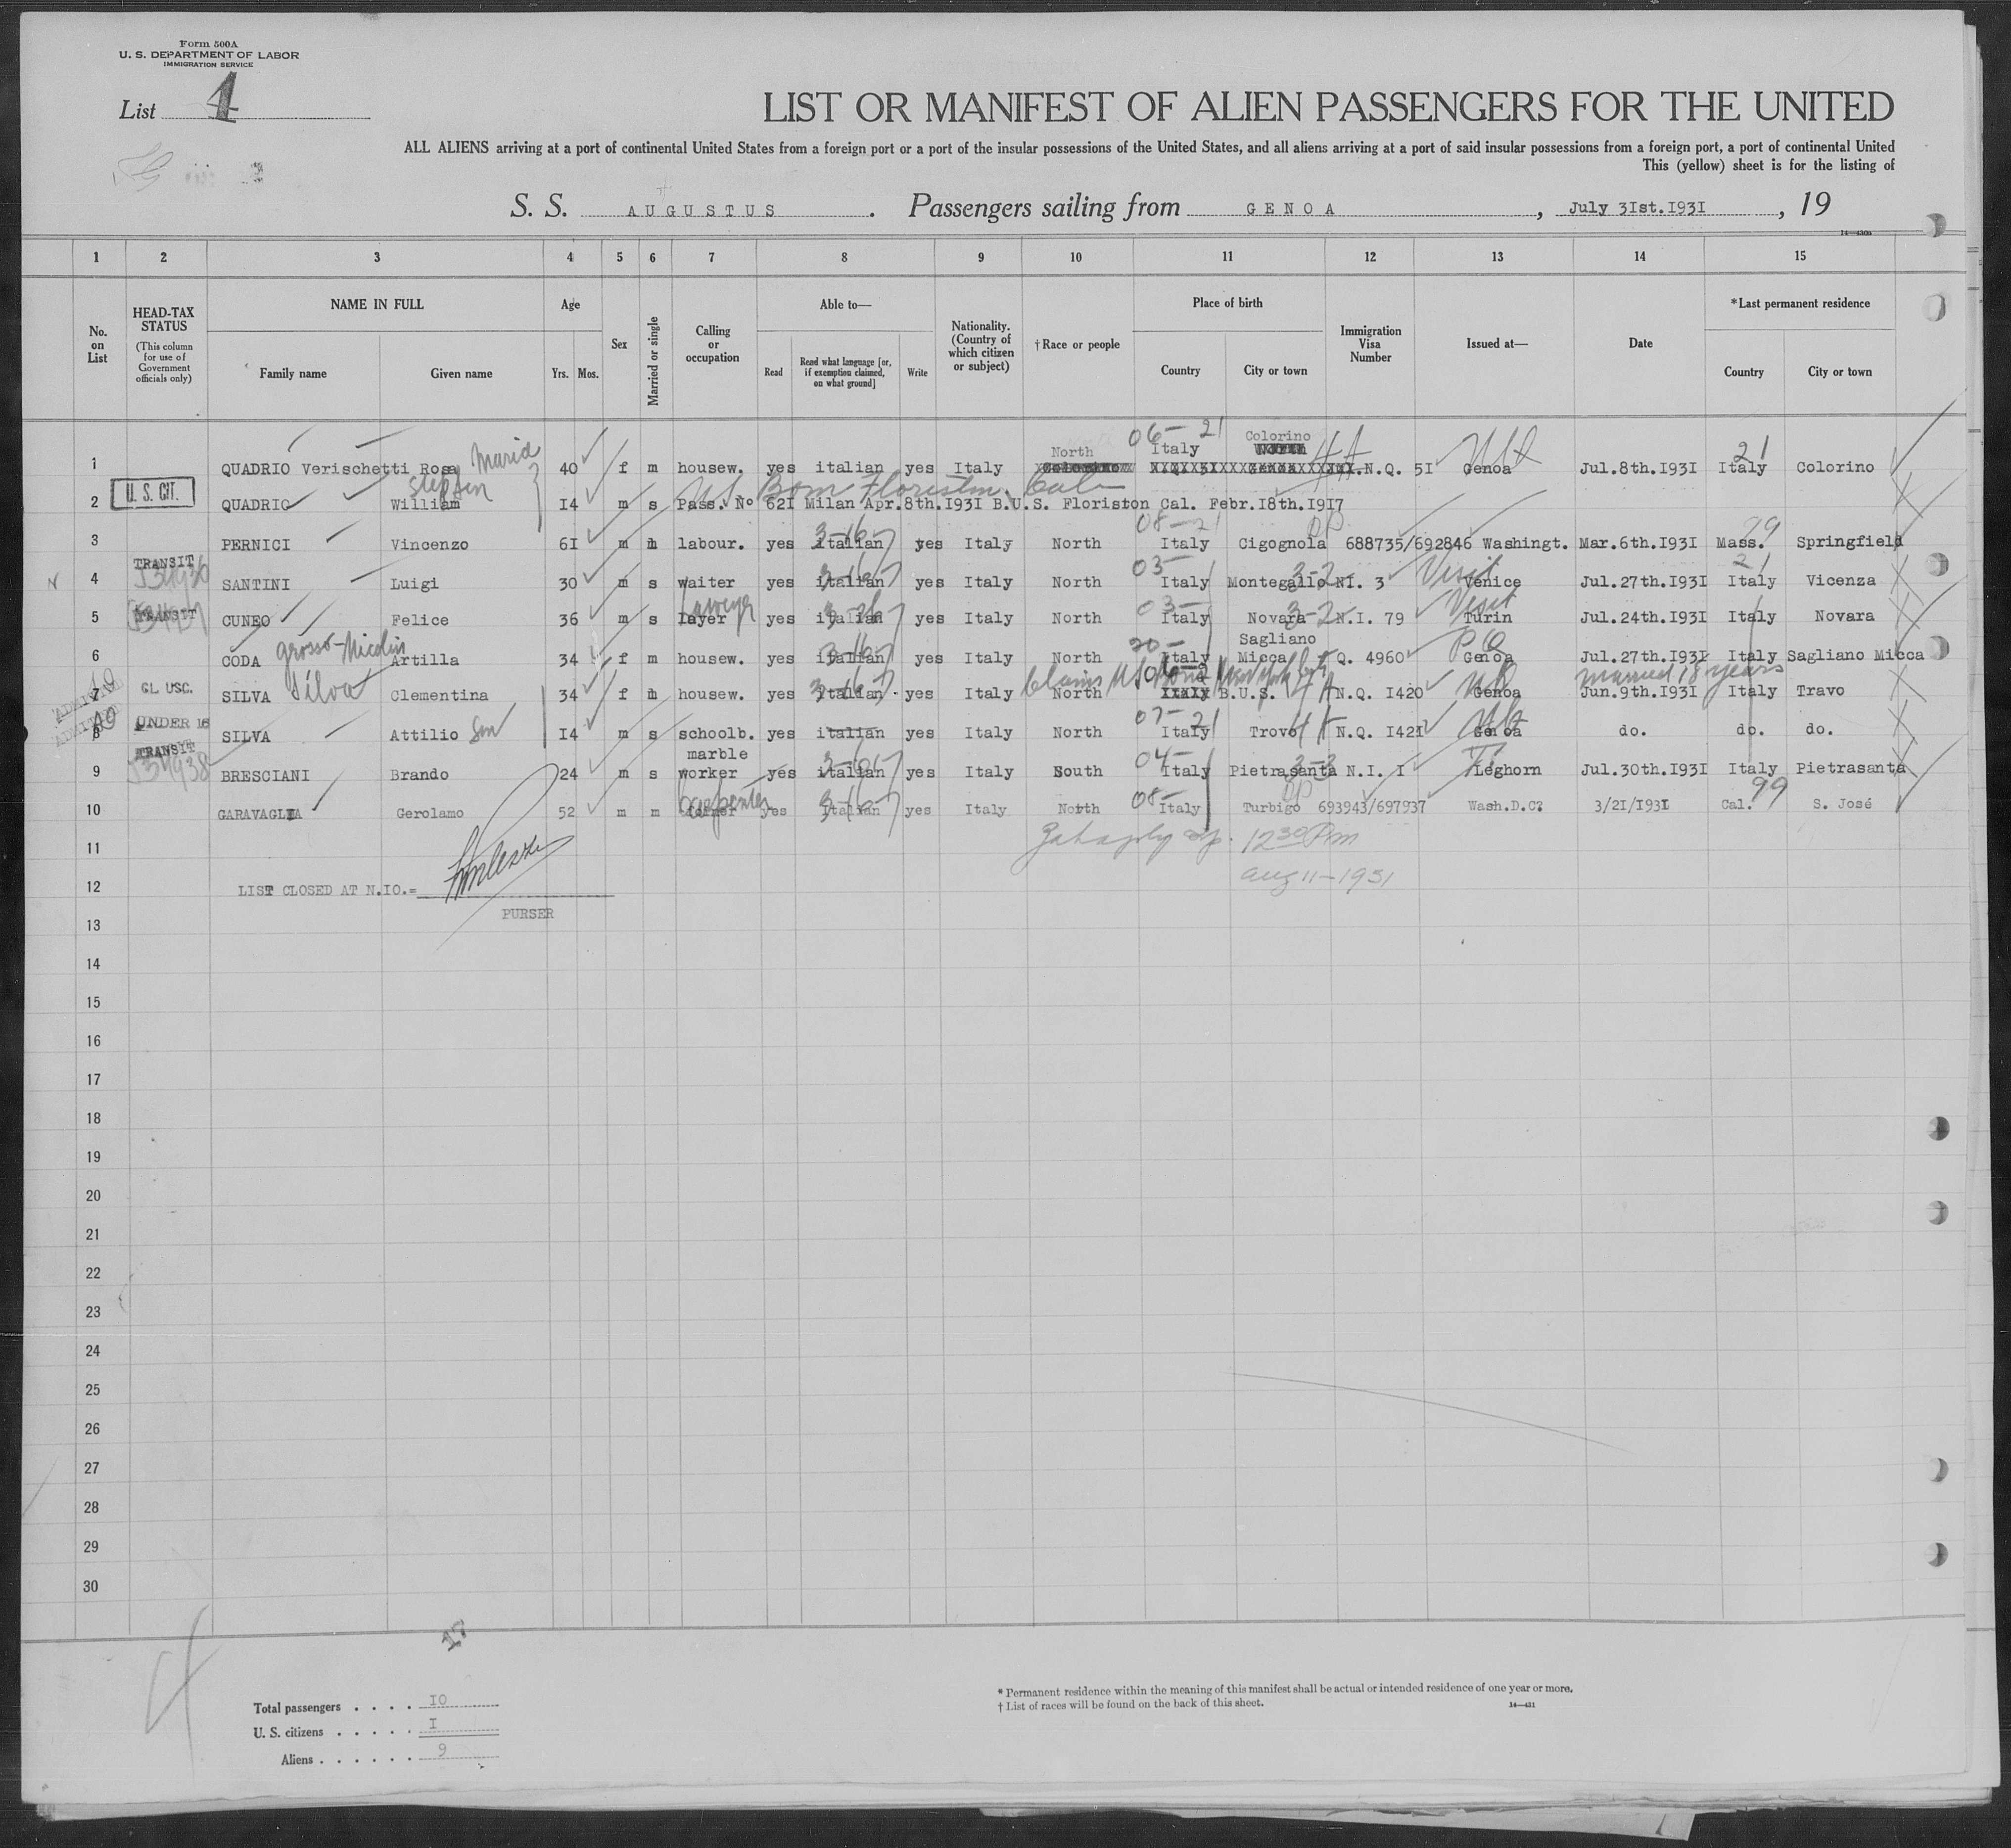 Form 500A
U. S. DEPARTMENT OF LABOR
IMMIGRATION SERVICE
List 4
LIST OR MANIFEST OF ALIEN PASSENGERS FOR THE UNITED
ALL ALIENS arriving at a port of continental United States from a foreign port or a port of the insular possessions of the United States, and all aliens arriving at a port of said insular possessions from a foreign port, a port of continental United
This (yellow) sheet is for the listing of
S. S. AUGUSTUS. Passengers sailing from GENOA, July 3Ist.I93I, 19
1 2 3 4 5 6 7 8 9 10 11 12 13 14 15
No. on List
HEAD-TAX STATUS (This column for use of Government officials only)
NAME IN FULL
Family name Given name
Age
Yrs. Mos.
Sex
Married or single
Calling or occupation
Able to—
Read
Read what language [or, if exemption claimed, on what ground]
Write
Nationality. (Country of which citizen or subject)
†Race or people
Place of birth
Country City or town
Immigration Visa Number
Issued at—
Date
*Last permanent residence
Country City or town
06-21 Colorino
Maria North Italy 21
1 QUADRIO Verischetti Rosa 40 f m housew. yes italian yes Italy N.Q. 5I Genoa Jul.8th.I93I Italy Colorino
Born Floriston Cal
2 U. S. CIT. QUADRIO William I4 m s Pass. No 62I Milan Apr.8th.I93I B.U.S. Floriston Cal. Febr.I8th.I9I7
08-21 99
3 PERNICI Vincenzo 6I m m labour. yes italian yes Italy North Italy Cigognola 688735/692846 Washingt. Mar.6th.I93I Mass. Springfield
TRANSIT 03- Visit 21
4 SANTINI Luigi 30 m s waiter yes italian yes Italy North Italy Montegallo NI. 3 Venice Jul.27th.I93I Italy Vicenza
TRANSIT Lawyer 03- Visit
5 CUNEO Felice 36 m s layer yes italian yes Italy North Italy Novara N.I. 79 Turin Jul.24th.I93I Italy Novara
grosso-Nicolin Sagliano
6 CODA Artilla 34 f m housew. yes italian yes Italy North Italy Micca Q. 4960 Genoa Jul.27th.I93I Italy Sagliano Micca
Silva married 18 years
7 GL USC. SILVA Clementina 34 f m housew. yes italian yes Italy North B.U.S. N.Q. I420 Genoa Jun.9th.I93I Italy Travo
07-21
8 UNDER 16 SILVA Attilio Son I4 m s schoolb. yes italian yes Italy North Italy Trovo N.Q. I42I Genoa do. do. do.
TRANSIT marble 04-
9 BRESCIANI Brando 24 m s worker yes italian yes Italy South Italy Pietrasanta N.I. I Leghorn Jul.30th.I93I Italy Pietrasanta
carpenter 08- 99
10 GARAVAGLIA Gerolamo 52 m m yes italian yes Italy North Italy Turbigo 693943/697937 Wash.D.C? 3/2I/I93I Cal. S. José
11 12 30 Pm
12 LIST CLOSED AT N.IO.= Aug 11-1931
PURSER
13
14
15
16
17
18
19
20
21
22
23
24
25
26
27
28
29
30
Total passengers . . . . IO
U. S. citizens . . . . . I
Aliens . . . . . . 9
* Permanent residence within the meaning of this manifest shall be actual or intended residence of one year or more.
† List of races will be found on the back of this sheet.
14—421